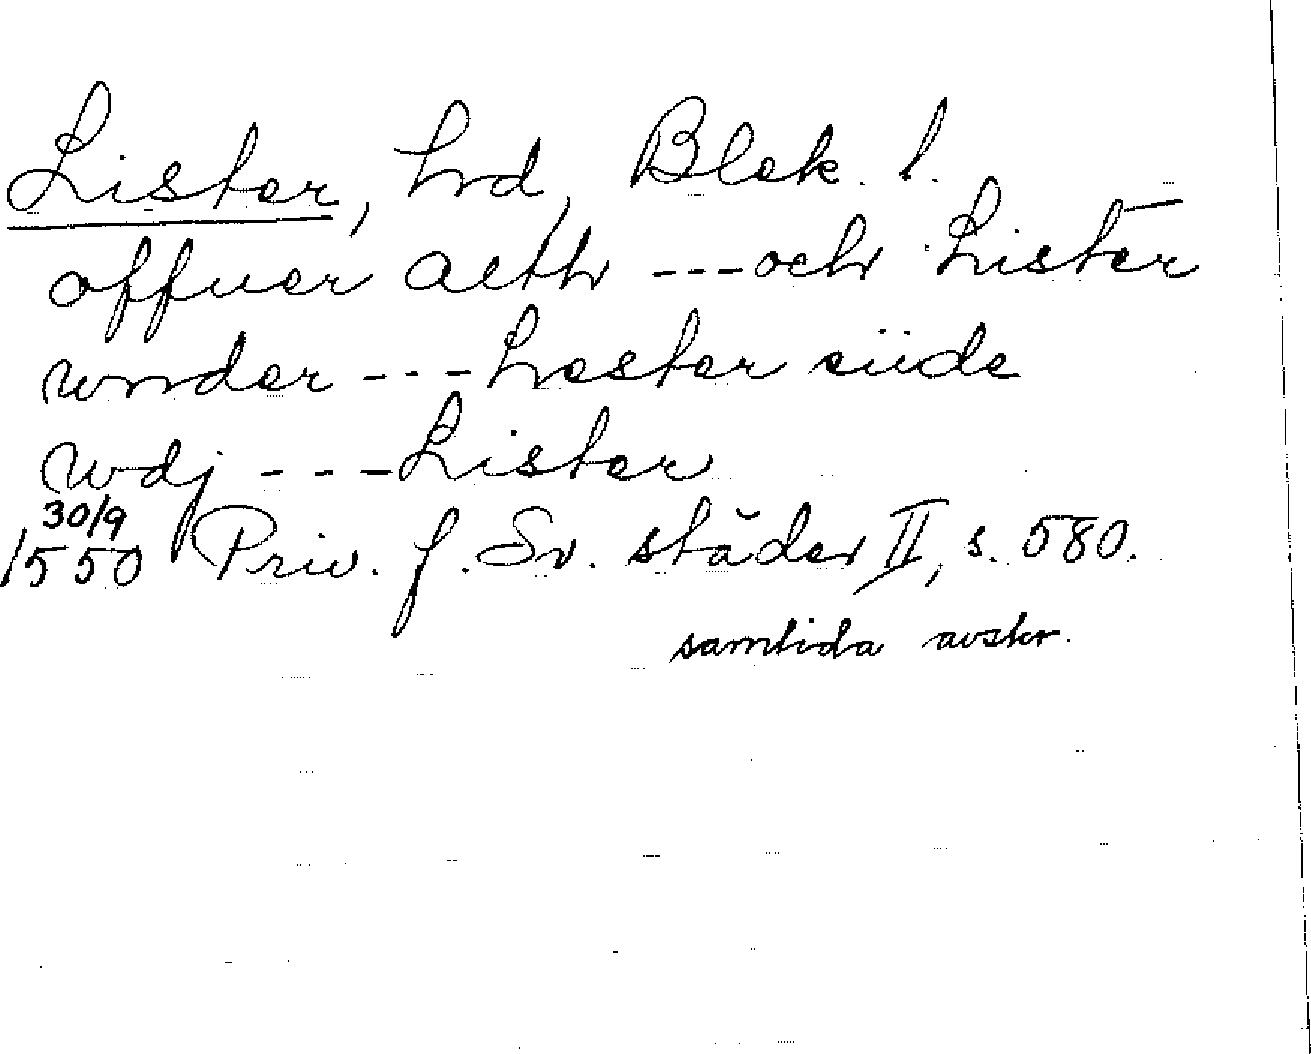 Lister, hrd, Blek. l.
offuer aelth --- och Lister
wnder --- Lester siide
wdj --- Lister
30/9
1550 Priv. f. Sv. städer II, s. 580.
samtida avskr.